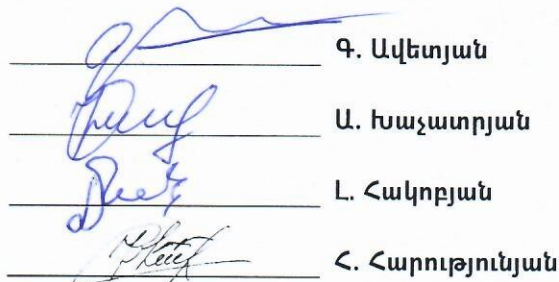 Գ. Ավետյան
Ա. Խաչատրյան
Լ. Հակոբյան
Հ. Հարությունյան